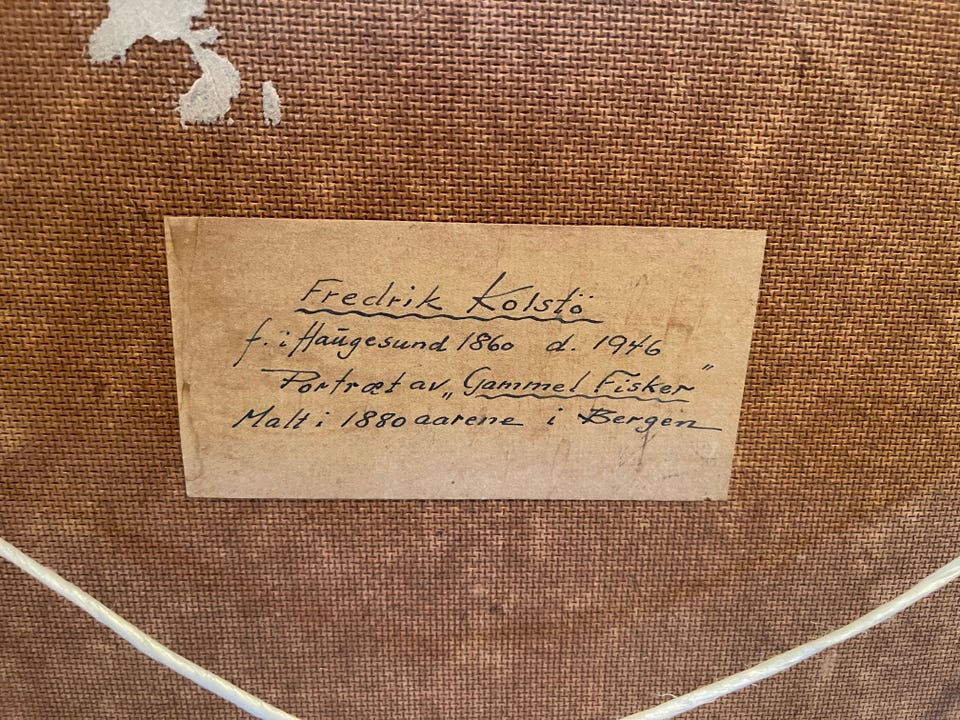 Fredrik Kolstö
f. i Haŭgesund 1860 d. 1946
Portræt av „Gammel Fisker"
Malt i 1880 aarene i Bergen